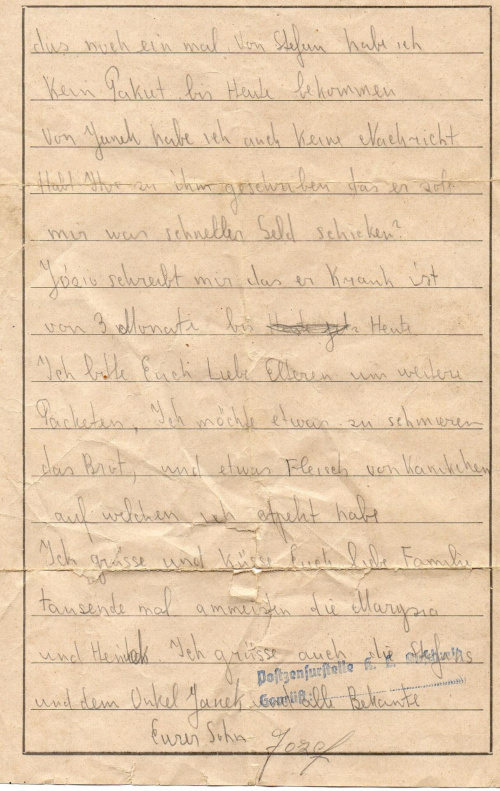 das noch ein mal von Stefun habe ich
Kein Paket bis Heute bekommen
Von Janek habe ich auch Keine Nachricht
Habt Ihr zu ihm geschrieben das er soll
mir was schneller Geld schicken?
Józio schreibt mir das er Krank ist
von 3 Monate bis Heute
Ich bitte Euch Liebe Elteren um weitere
Packeten, Ich möchte etwas zu schmieren
das Brot, und etwas Fleisch von Kaninchen
auf welchen ich apetit habe
Ich grüsse und Küsse Euch liebe Familie
tausende mal ammeisten die Marysia
und Heniek Ich grüsse auch die Stefans
Postzensurstelle K. L.
und dem Onkel Janek und alle Bekante
Geprüft:
Eurer Sohn Jozef